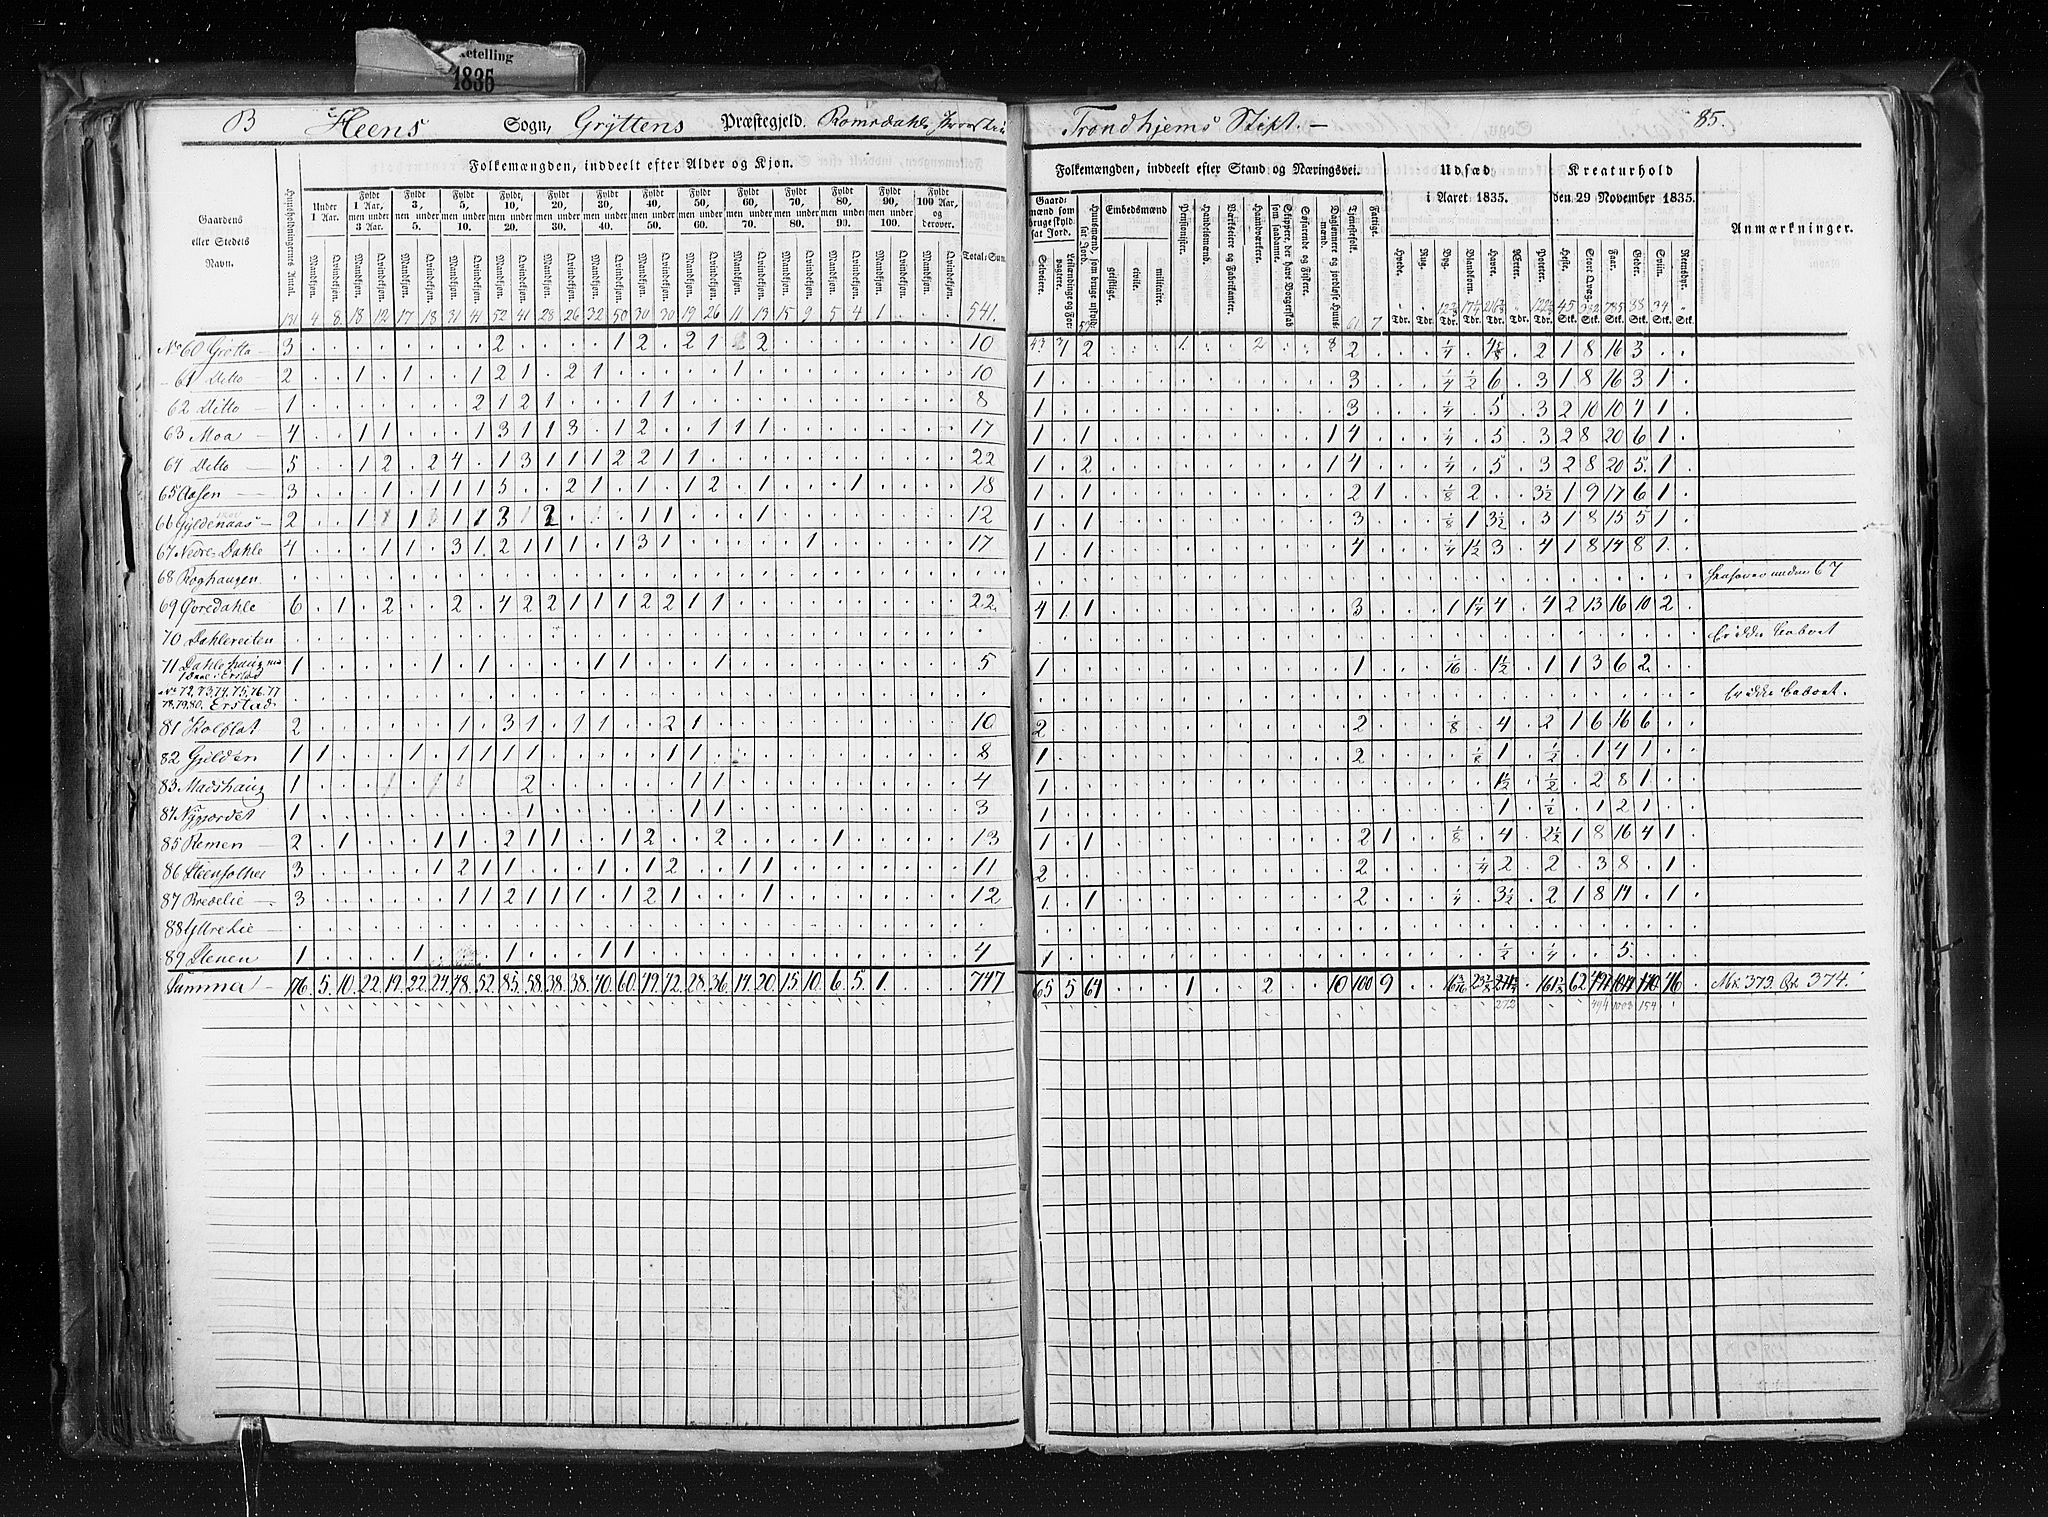 ketelling
1835
B Heens Sogn, Gryttens Præstegjeld. Romsdahls Trondhjems Stift. — 85.
Folkemængden, inddeelt efter Alder og Kjøn.
Folkemængden, inddeelt efter Stand og Næringsvei.
Udsæd i Aaret 1835.
Kreaturhold den 29 November 1835.
Anmærkninger.
Gaardens eller Stedets Navn.
Huusholdningernes Antal.
Under 1 Aar.
Fyldt 1 Aar, men under 3 Aar.
Fyldt 3, men under 5.
Fyldt 5, men under 10.
Fyldt 10, men under 20.
Fyldt 20, men under 30.
Fyldt 30, men under 40.
Fyldt 40, men under 50.
Fyldt 50, men under 60.
Fyldt 60, men under 70.
Fyldt 70, men under 80.
Fyldt 80, men under 90.
Fyldt 90, men under 100.
Fyldt 100 Aar, og derover.
Mandkjøn. Qvindekjøn.
Total-Sum.
Gaardmænd som bruge skyldsat Jord.
Selveiere. Leilændinge og Forpagtere.
Huusmænd, som bruge uskyldsat Jord.
Embedsmænd
geistlige. civile. militaire.
Pensionister.
Handelsmænd.
Værkseiere og Fabrikanter.
Handværkere.
Skippere, der have Borgerskab som saadanne.
Søfarende og Fiskere.
Daglønnere og jordløse Huusmænd.
Tjenestefolk.
Fattige.
Hvede. Rug. Byg. Blandkorn. Havre. Erter. Poteter.
Heste. Stort Qvæg. Faar. Gjeder. Sviin. Reensdyr.
Tdr. Tdr. Tdr. Tdr. Tdr. Tdr. Tdr. Stk. Stk. Stk. Stk. Stk. Stk.
131 4 8 18 12 17 18 31 41 52 41 28 26 22 50 30 30 19 26 11 13 15 9 5 4 1 541.
No 60 Grøtta 3 2 1 2 2 1 2 10 2 2 1/4 2 1 8 16 3
61 Ditto 2 1 1 1 2 1 2 1 1 10 1 3 1/4 1/2 6 3 1 8 16 3 1
62 Ditto 1 2 1 2 1 1 1 8 1 3 1/4 5 3 2 10 10 4 1
63 Moa 4 1 1 1 3 1 1 3 1 2 1 1 1 17 1 1 1 4 1/4 5 3 2 8 20 6 1
64 Ditto 5 1 2 2 4 1 3 1 1 1 2 2 1 1 22 1 2 1 4 1/4 5 3 2 8 20 5 1
65 Aasen 3 1 1 1 1 5 2 1 1 1 2 1 1 18 1 1 2 1 1/8 2 3 1/2 1 9 17 6 1
66 Gyldenaas 2 12 1 1 3 1/8 1 3 1/2 3 1 8 15 5 1
67 Nedre-Dahle 4 1 1 3 1 2 1 1 1 1 3 1 1 17 1 1 4 1/4 1 1/2 3 4 1 8 14 8 1
68 Roghaugen under 67
69 Øvredahle 6 1 2 2 4 2 2 1 1 1 2 2 1 1 22 4 1 1 3 1 1 1/4 4 4 2 13 16 10 2
70 Dahlereiten Er ikke beboet
71 Dahlehaug 1 1 1 1 1 1 5 1 1 1/16 1 1/2 1 1 3 6 2
No 72, 73, 74, 75, 76, 77 78, 79, 80. Erstad Er ikke beboet.
81 Kolflat 2 1 3 1 1 1 2 1 10 2 2 1/8 4 2 1 6 16 6
82 Gjelden 1 1 1 1 1 1 1 1 1 8 1 2 1/8 1 1/2 1 4 1
83 Madshaug 1 2 1 1 4 1 1 1/2 1/2 2 8 1
84 Nygjordet 1 1 1 1 3 1 1 1/2 1 2 1
85 Remen 2 1 1 1 2 1 1 1 2 2 1 13 1 1 2 1 1/8 4 2 1/2 1 8 16 4 1
86 3 1 2 1 1 1 1 2 1 1 11 2 2 1/4 2 2 3 8 1
87 Bredelie 3 1 1 2 1 1 1 1 2 1 1 12 1 1 2 1/4 3 1/2 2 1 8 14 1
88 Yttrelie
89 Stenen 1 1 1 1 1 4 1 1/2 1/4 5
Summa 176. 5. 10. 22. 19. 22. 24. 48. 52. 85. 58. 38. 38. 40. 60. 49. 42. 28. 36. 14. 20. 15. 10. 6. 5. 1. 747 65 5 64 1 2 10 100 9 62 46 Mk 373. Qk 374.
272 494 1003 154